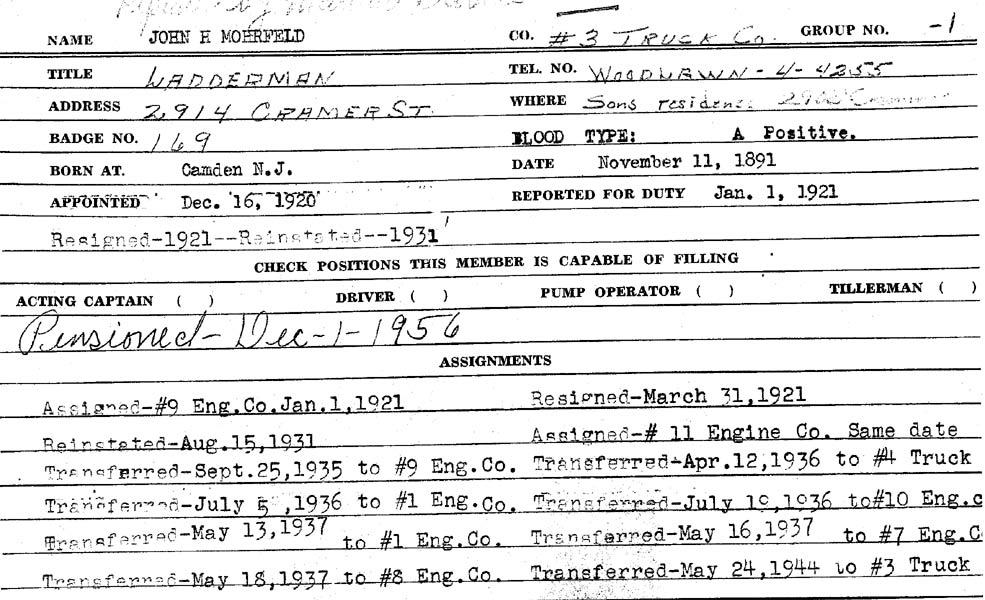 NAME JOHN H MOHRFELD CO. #3 TRUCK CO. GROUP NO. -1
TITLE LADDERMAN TEL. NO. WOODLAWN-4-4255
ADDRESS 2914 CRAMER ST. WHERE Sons residence
BADGE NO. 169 BLOOD TYPE: A Positive.
BORN AT. Camden N.J. DATE November 11, 1891
APPOINTED Dec. 16, 1920 REPORTED FOR DUTY Jan. 1, 1921
Resigned-1921--Reinstated--1931
CHECK POSITIONS THIS MEMBER IS CAPABLE OF FILLING
ACTING CAPTAIN ( ) DRIVER ( ) PUMP OPERATOR ( ) TILLERMAN ( )
Pensioned-Dec-1-1956
ASSIGNMENTS
Assigned-#9 Eng.Co.Jan.1,1921 Resigned-March 31,1921
Reinstated-Aug.15,1931 Assigned-# 11 Engine Co. Same date
Transferred-Sept.25,1935 to #9 Eng.Co. Transferred-Apr.12,1936 to #4 Truck
Transferred-July 5 ,1936 to #1 Eng.Co. Transferred-July 19,1936 to#10 Eng.c
Transferred-May 13,1937 to #1 Eng.Co. Transferred-May 16,1937 to #7 Eng.C
Transferred-May 18,1937 to #8 Eng.Co. Transferred-May 24,1944 to #3 Truck